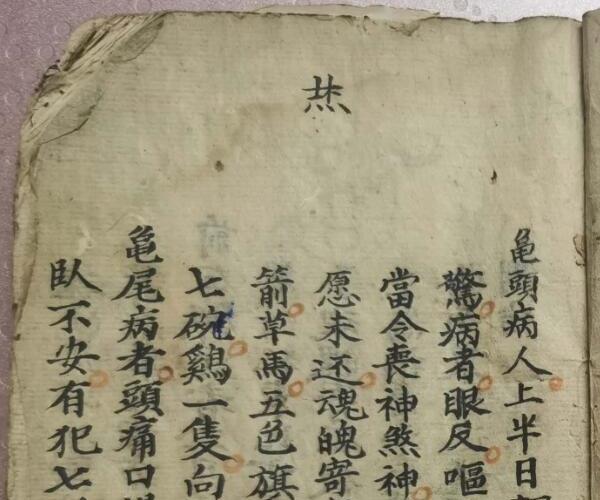 龜頭病人上半日
驚病者眼反嘔
當令喪神煞神
愿未还魂魄寄
箭草馬五色旗
七碗鷄一隻向
龜尾病者頭痛口
臥不安有犯七